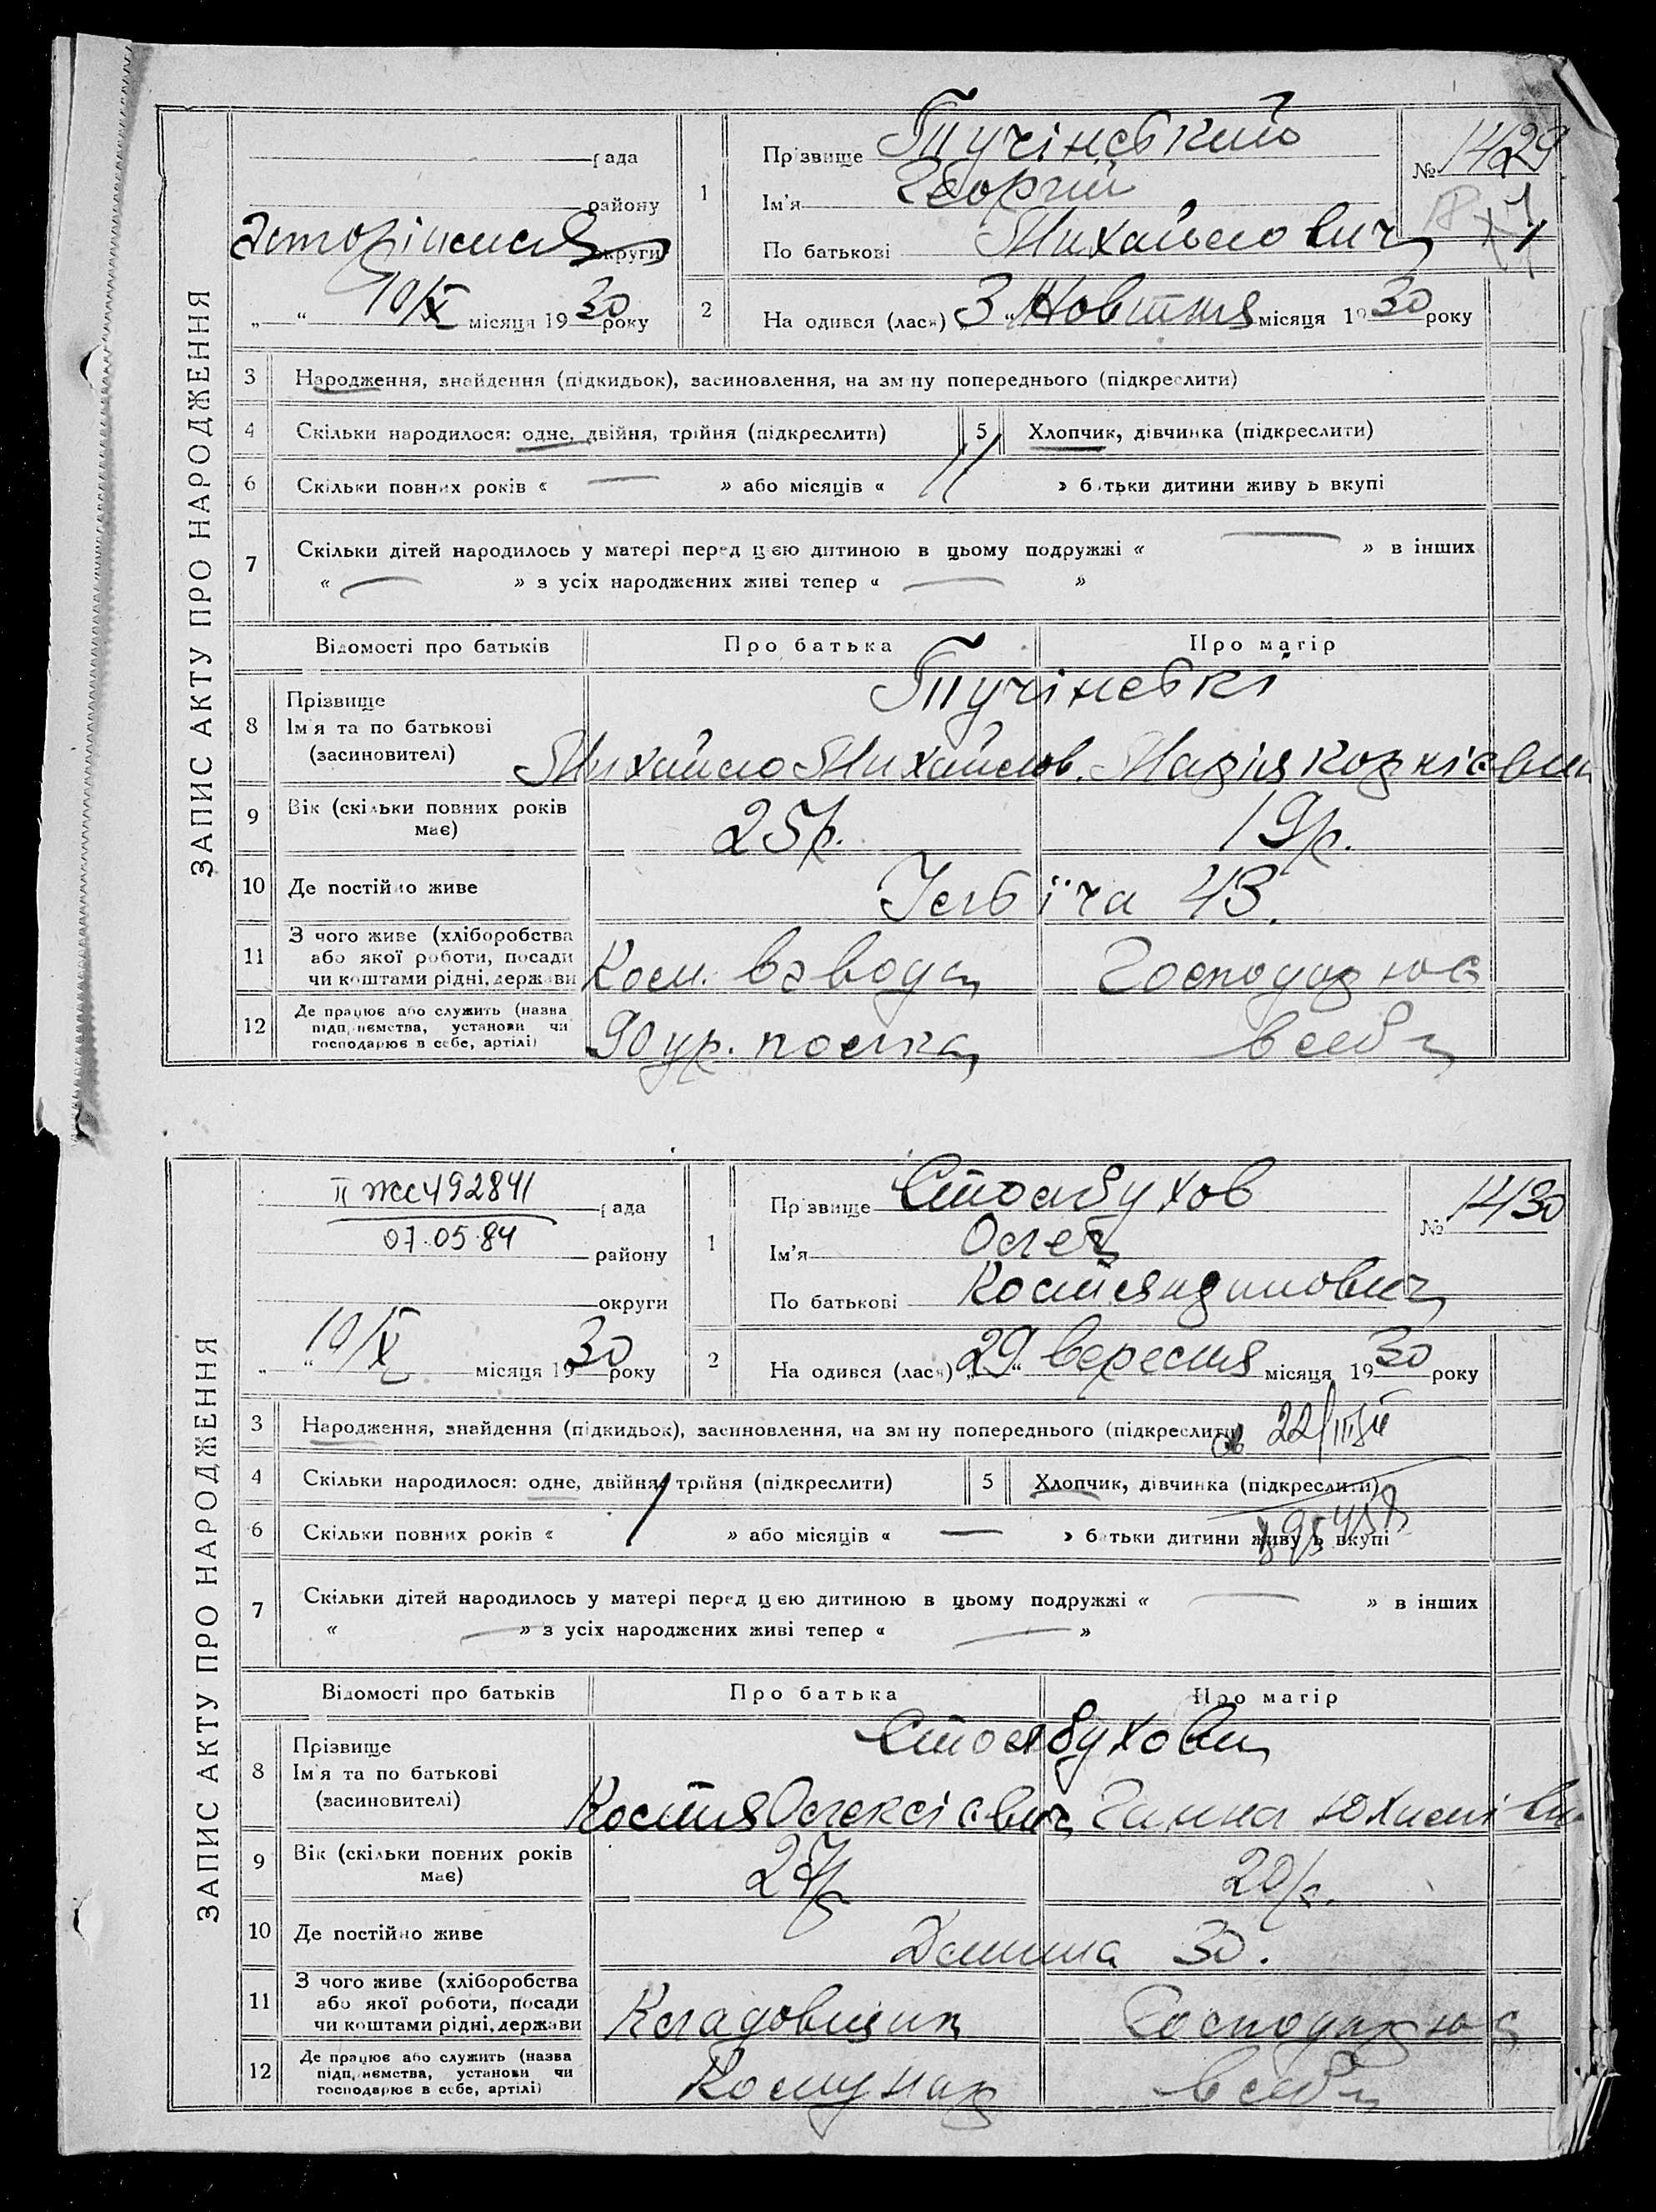 ЗАПИС АКТУ ПРО НАРОДЖЕННЯ
рада
району
округи
10/X місяця 1930 року
1
Прізвище Тучінський
Ім'я Георгій
По батькові Михайлович
№ 1429
2
Народився (лась) „3“ Жовтня місяця 1930 року
3 Народження, знайдення (підкидьок), засиновлення, на зміну попереднього (підкреслити)
4 Скільки народилося: одне, двійня, трійня (підкреслити)
5 Хлопчик, дівчинка (підкреслити)
6 Скільки повних років « — » або місяців « 11 » батьки дитини живуть вкупі
7 Скільки дітей народилось у матері перед цією дитиною в цьому подружжі « — » в інших
« — » з усіх народжених живі тепер « — »
Відомості про батьків Про батька Про матір
8 Прізвище
Ім'я та по батькові
(засиновителі)
Тучінські
Михайло Михайлов. Марія Корнієвна
9 Вік (скільки повних років має) 25 р. 19 р.
10 Де постійно живе 43.
11 З чого живе (хліборобства або якої роботи, посади чи коштами рідні, держави
Ком. взвода Господарює
12 Де працює або служить (назва підприємства, установи чи господарює в себе, артілі)
90 ур. полка в себе
ЗАПИС АКТУ ПРО НАРОДЖЕННЯ
II ЖС 492841
07.05.84
рада
району
округи
10/X місяця 1930 року
1
Прізвище Столбухов
Ім'я Олег
По батькові Костянтинович
№ 1430
2
Народився (лась) „29“ вересня місяця 1930 року
3 Народження, знайдення (підкидьок), засиновлення, на зміну попереднього (підкреслити)
4 Скільки народилося: одне, двійня, трійня (підкреслити)
5 Хлопчик, дівчинка (підкреслити)
6 Скільки повних років « 1 » або місяців « — » батьки дитини живуть вкупі
7 Скільки дітей народилось у матері перед цією дитиною в цьому подружжі « — » в інших
« — » з усіх народжених живі тепер « — »
Відомості про батьків Про батька Про матір
8 Прізвище
Ім'я та по батькові
(засиновителі)
Столбухови
Костя Олексієвич Ганна Юхимівн
9 Вік (скільки повних років має) 27 р 20 р.
10 Де постійно живе 30.
11 З чого живе (хліборобства або якої роботи, посади чи коштами рідні, держави
Кладовщик Господарює
12 Де працює або служить (назва підприємства, установи чи господарює в себе, артілі)
Комунар в себе